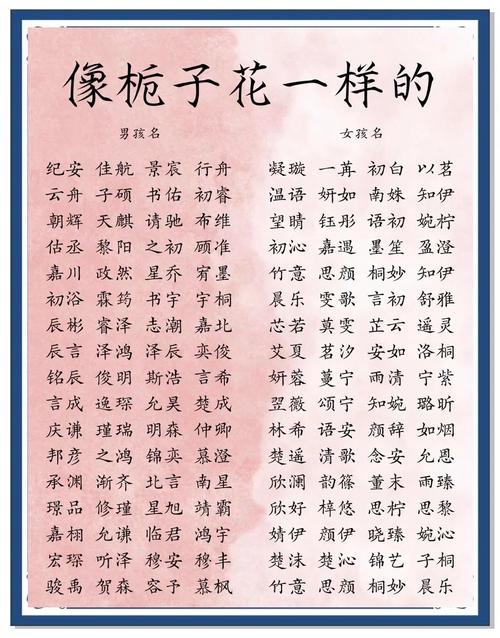 像栀子花一样的
男孩名 女孩名
纪安 佳航 景宸 行舟 凝璇 一苒 初白 以茗
云舟 子硕 书佑 初睿 温语 妍如 南姝 知伊
望辉 天麒 请驰 布维 望晴 钰彤 语初 婉柠
估丞 黎阳 之初 顾准 初沁 嘉遇 墨笙 盈澄
嘉川 政然 星乔 宥墨 竹意 思颜 桐妙 知伊
初浴 霖筠 书宇 宇桐 晨乐 雯歌 言初 舒雅
辰彬 睿泽 志潮 嘉北 芯若 莫雯 芷云 遥灵
辰言 泽鸿 泽辰 奕俊 艾夏 茗汐 安如 洛桐
铭辰 俊明 斯浩 言希 妍蓉 蔓宁 雨清 宁紫
言成 逸琛 允昊 楚成 翌薇 颂宁 知婉 璐昕
庆谦 瑾瑞 明森 仲卿 林希 语安 颜辞 如烟
邦彦 之鸿 锦奕 慕澄 楚遥 清歌 念安 允恩
承渊 渐齐 北言 南星 欣澜 韵篠 董末 雨臻
璟品 修瑾 星旭 靖霸 欣好 梓悠 思柠 思黎
嘉栩 允谦 临君 鸿宇 婧伊 颜伊 晓臻 婉沁
宏琛 听泽 穆安 穆丰 楚沫 楚沁 锦艺 子桐
骏禹 贺森 容予 慕枫 竹意 思颜 桐妙 晨乐